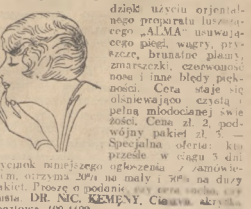 dzięki użyciu orjental-
nego preparatu
cego „ALMA" usuwają-
cego piegi, wągry, pry-
szcze, brunatne plamy,
zmarszczki, czerwoność
nosa i inne błędy pięk-
ności. Cera staje się
olśniewająco czystą i
pełną młodocianej świe-
żości. Cena zł. 2, pod-
wójny pakiet zł. 3.
Specjalna oferta: kto
prześle w ciągu 3 dni
niniejszego ogłoszenia z zamówie-
niem, otrzyma 20% na mały i 30% na duży
pakiet. Proszę o podanie, czy cera sucha, czy
tłusta. DR. NIC. KEMENY,